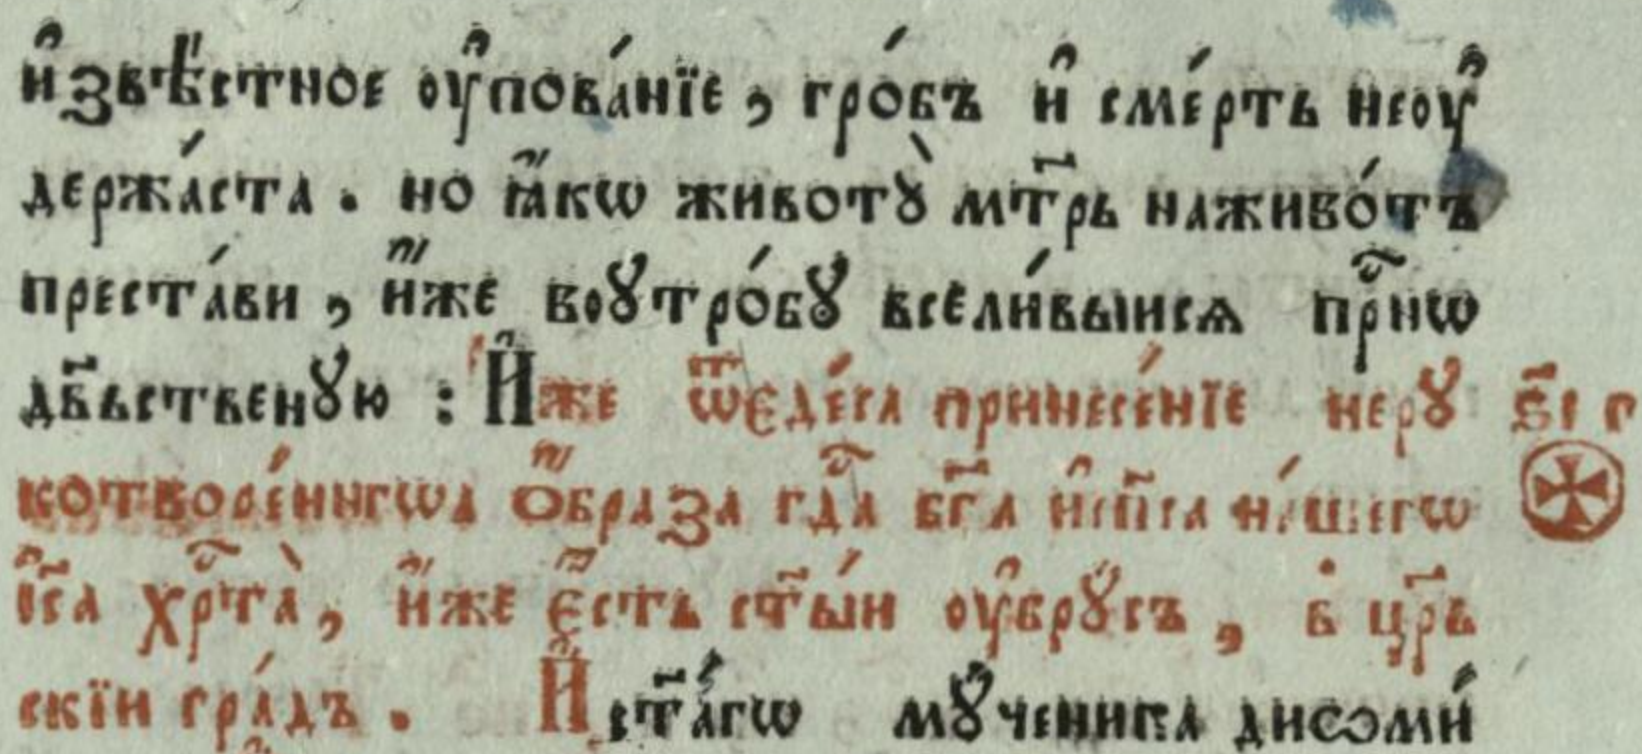 и҆звѣ́стное оу҆пова́нїе, гро́бъ и҆ сме́рть неоу҆
держа́ста. но ꙗ҆́кѡ животꙋ̀ мт҃рь наживо́тъ
преста́ви, и҆́же воꙋтро́бꙋ всели́выисѧ при҇нѡ
дв҃ьственꙋю : И҆́же ѿєде́са принесе́нїе нерꙋ
котворе́ннгѡа ѻ҆́браза гд҇а бг҃а и҆сп҃са на́шегѡ
і҆с҃а хр҇та̀, и҆́же є҆́сть ст҃ы́и оу҆брꙋ́съ, в цр҇ь
скїи гра́дъ. И҆ ст҃а́гѡ мꙋ́ченика диѡми́
ѕ҃і с